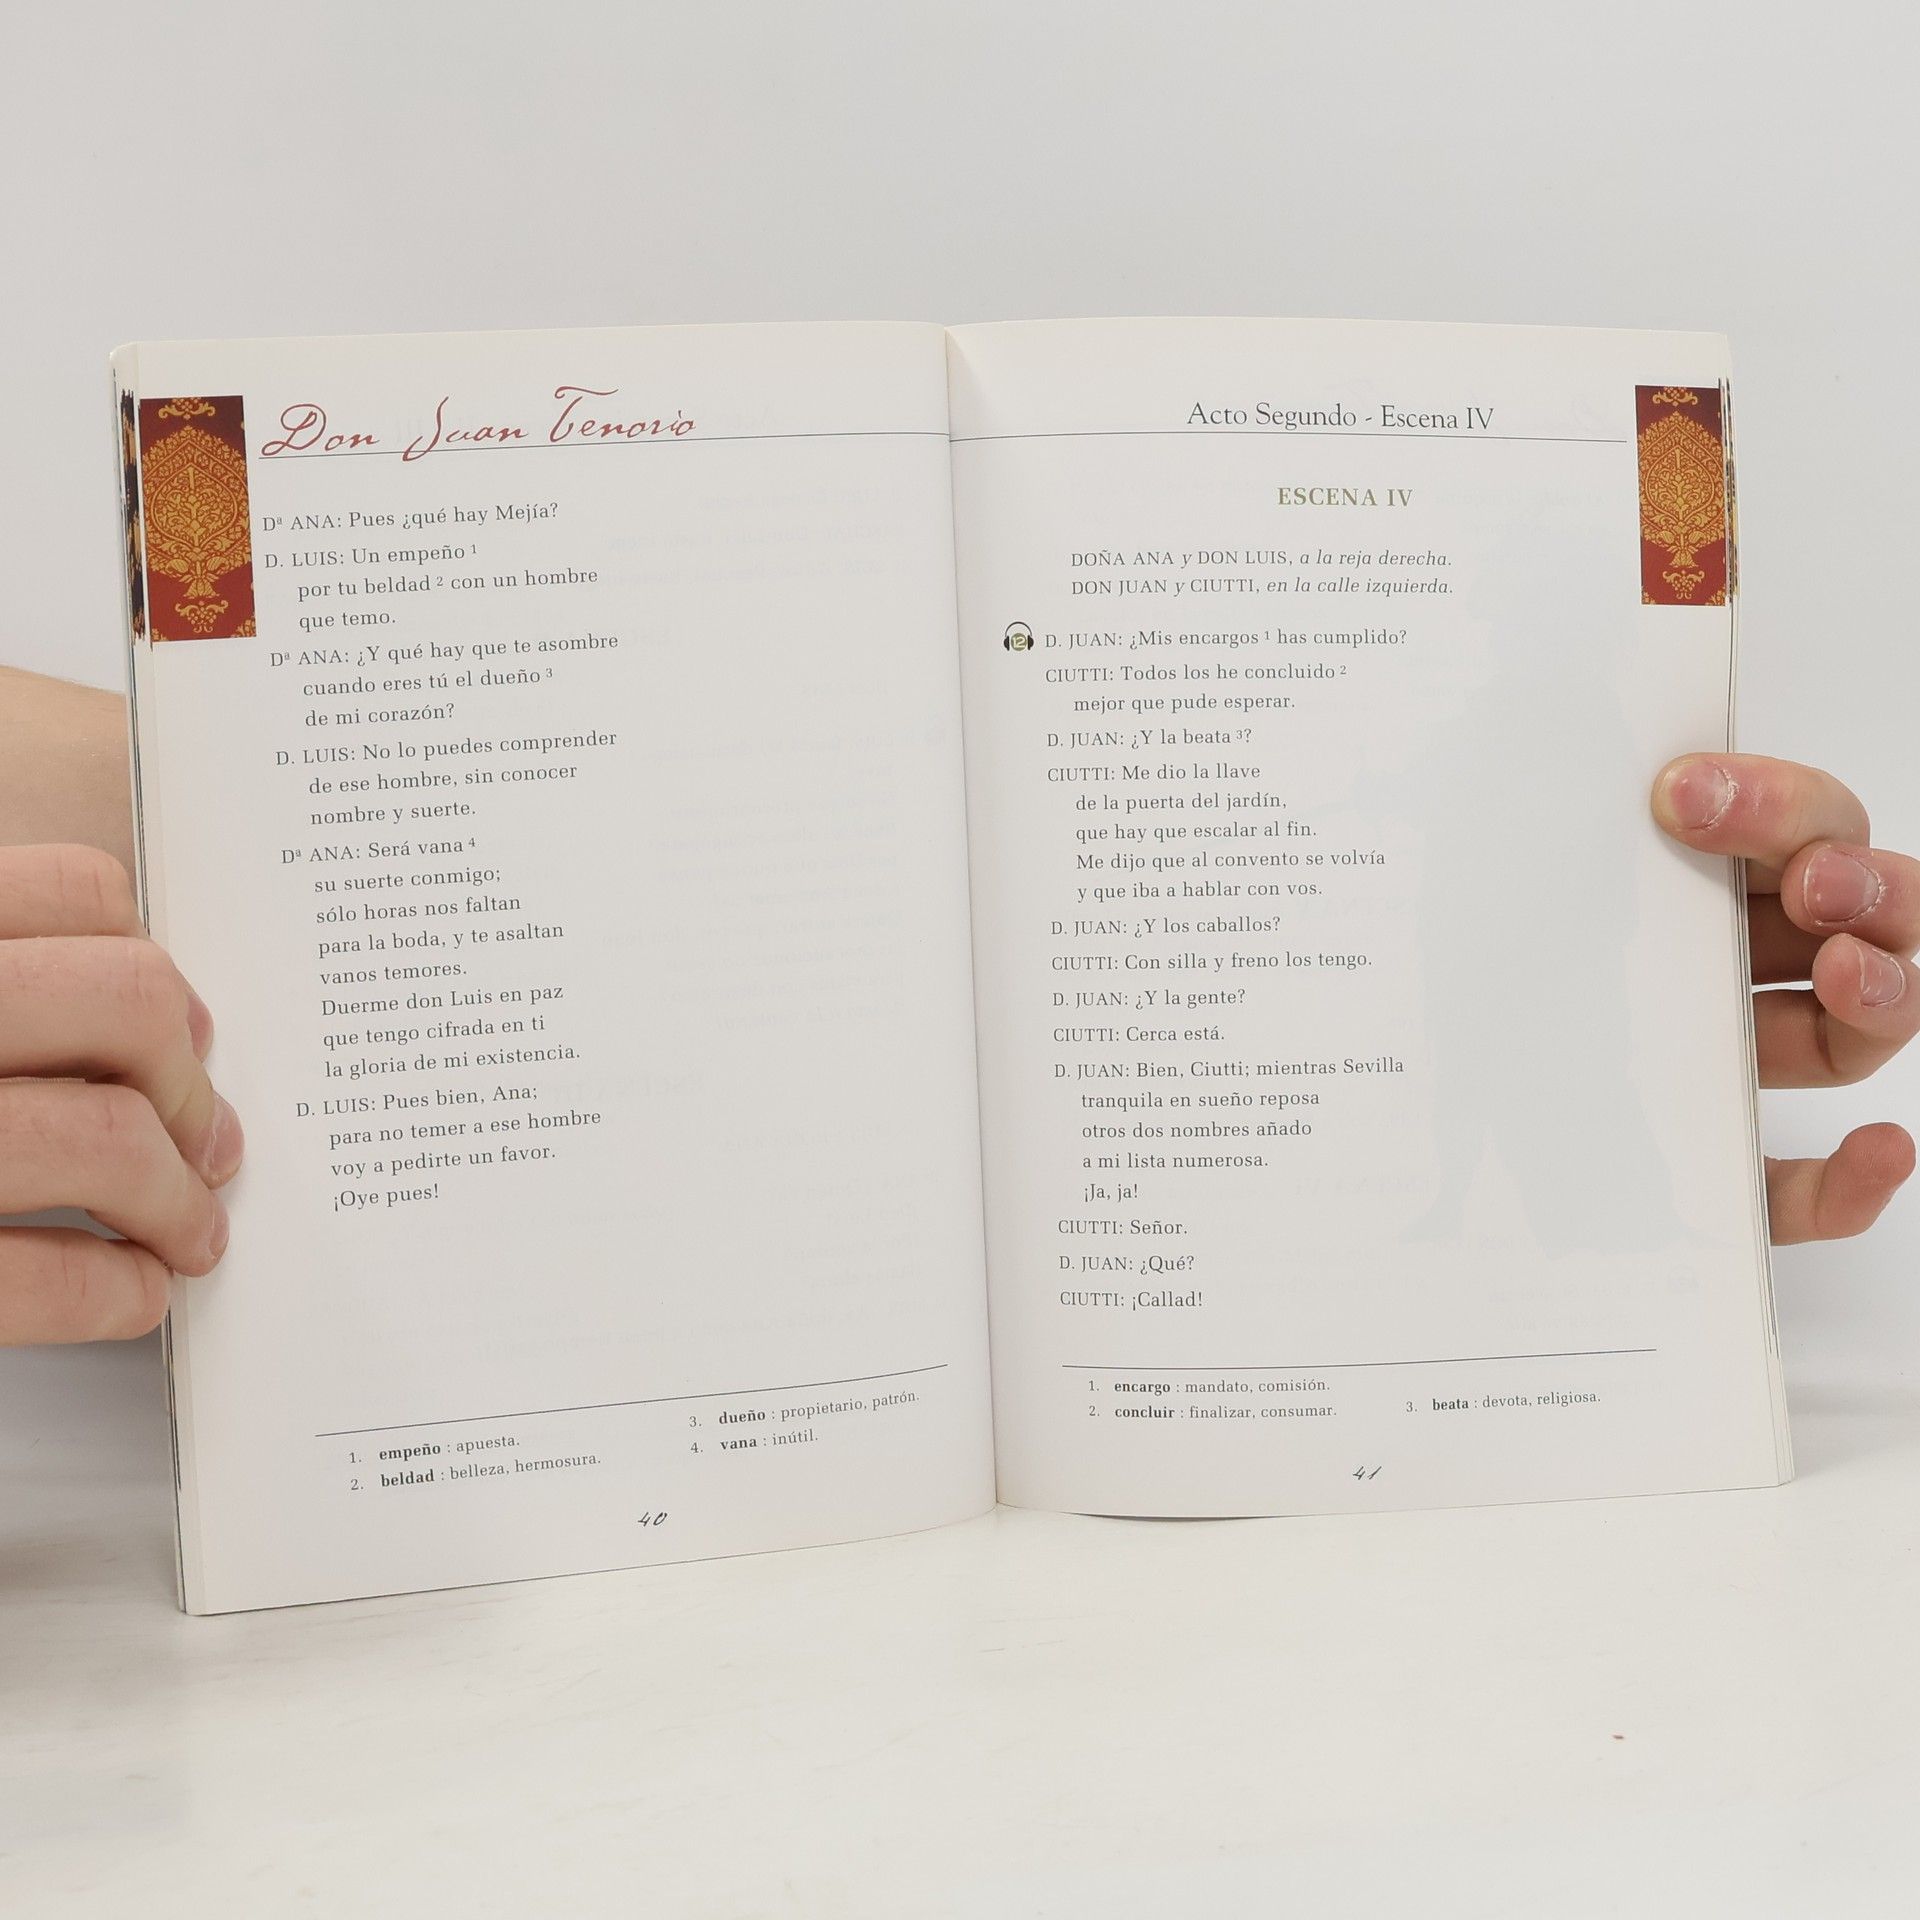 Don Juan Tenorio
Dª ANA: Pues ¿qué hay Mejía?
D. LUIS: Un empeño ¹
por tu beldad ² con un hombre
que temo.
Dª ANA: ¿Y qué hay que te asombre
cuando eres tú el dueño ³
de mi corazón?
D. LUIS: No lo puedes comprender
de ese hombre, sin conocer
nombre y suerte.
Dª ANA: Será vana ⁴
su suerte conmigo;
sólo horas nos faltan
para la boda, y te asaltan
vanos temores.
Duerme don Luis en paz
que tengo cifrada en ti
la gloria de mi existencia.
D. LUIS: Pues bien, Ana;
para no temer a ese hombre
voy a pedirte un favor.
¡Oye pues!
1. empeño : apuesta.
2. beldad : belleza, hermosura.
3. dueño : propietario, patrón.
4. vana : inútil.
40
Acto Segundo - Escena IV
ESCENA IV
DOÑA ANA y DON LUIS, a la reja derecha.
DON JUAN y CIUTTI, en la calle izquierda.
12
D. JUAN: ¿Mis encargos ¹ has cumplido?
CIUTTI: Todos los he concluido ²
mejor que pude esperar.
D. JUAN: ¿Y la beata ³?
CIUTTI: Me dio la llave
de la puerta del jardín,
que hay que escalar al fin.
Me dijo que al convento se volvía
y que iba a hablar con vos.
D. JUAN: ¿Y los caballos?
CIUTTI: Con silla y freno los tengo.
D. JUAN: ¿Y la gente?
CIUTTI: Cerca está.
D. JUAN: Bien, Ciutti; mientras Sevilla
tranquila en sueño reposa
otros dos nombres añado
a mi lista numerosa.
¡Ja, ja!
CIUTTI: Señor.
D. JUAN: ¿Qué?
CIUTTI: ¡Callad!
1. encargo : mandato, comisión.
2. concluir : finalizar, consumar.
3. beata : devota, religiosa.
41